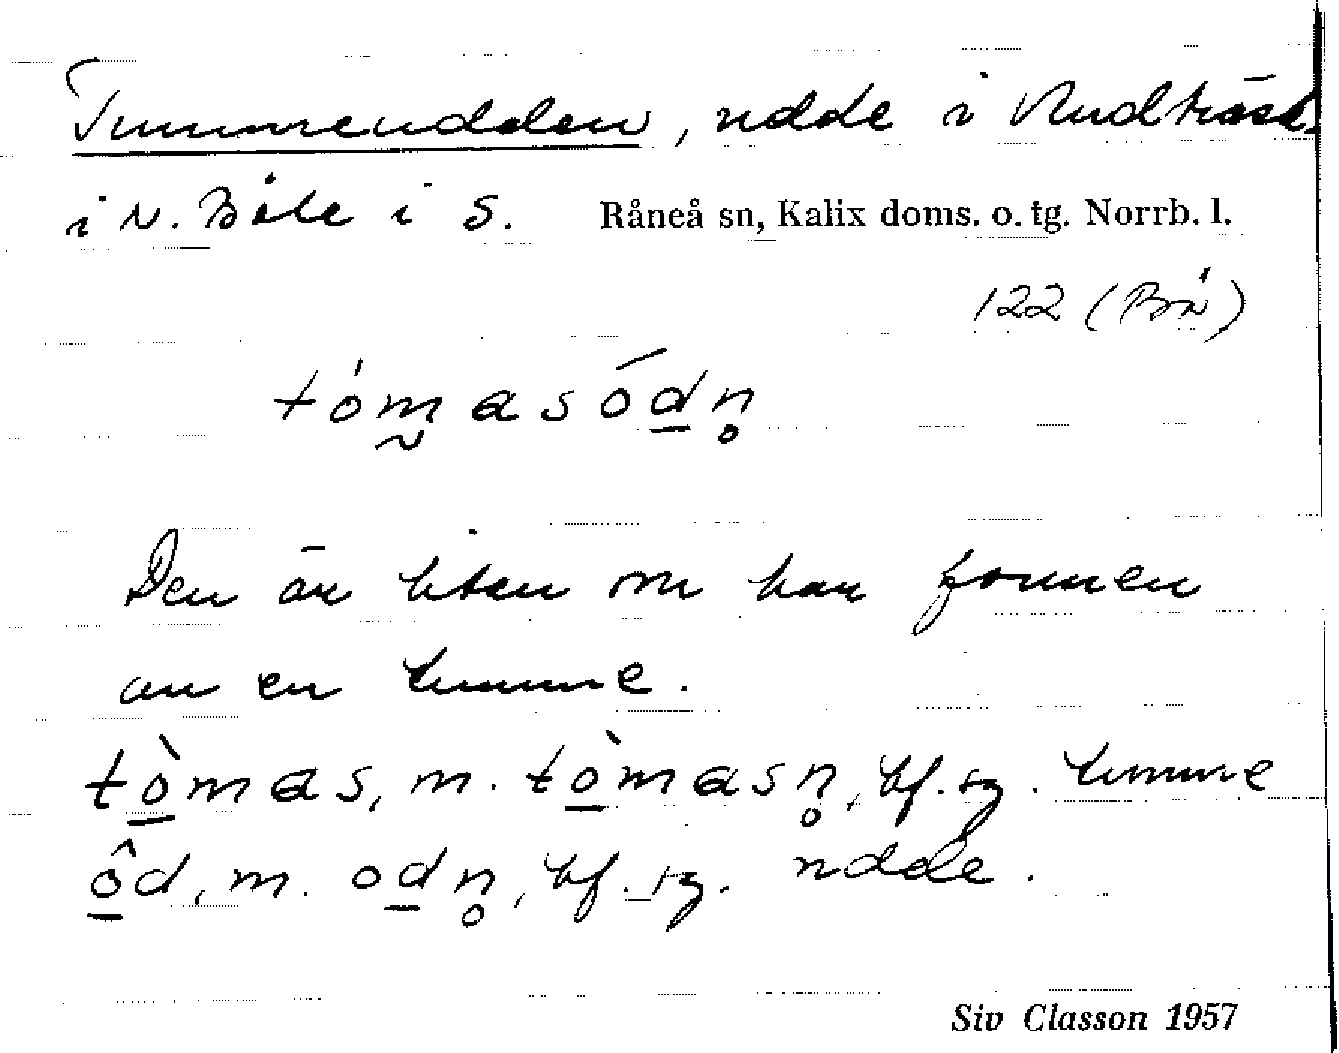 Tummeudden, udde i Rudträsk
i N. Böle i S. Råneå sn, Kalix doms. o. tg. Norrb. l.
122 (Bå)
tómasódn̥
Den är liten och har formen
av en tumme.
tòmas, m. tòmasn̥, bf. sg. tumme
ôd, m. odn̥, bf. sg. udde.
Siv Classon 1957